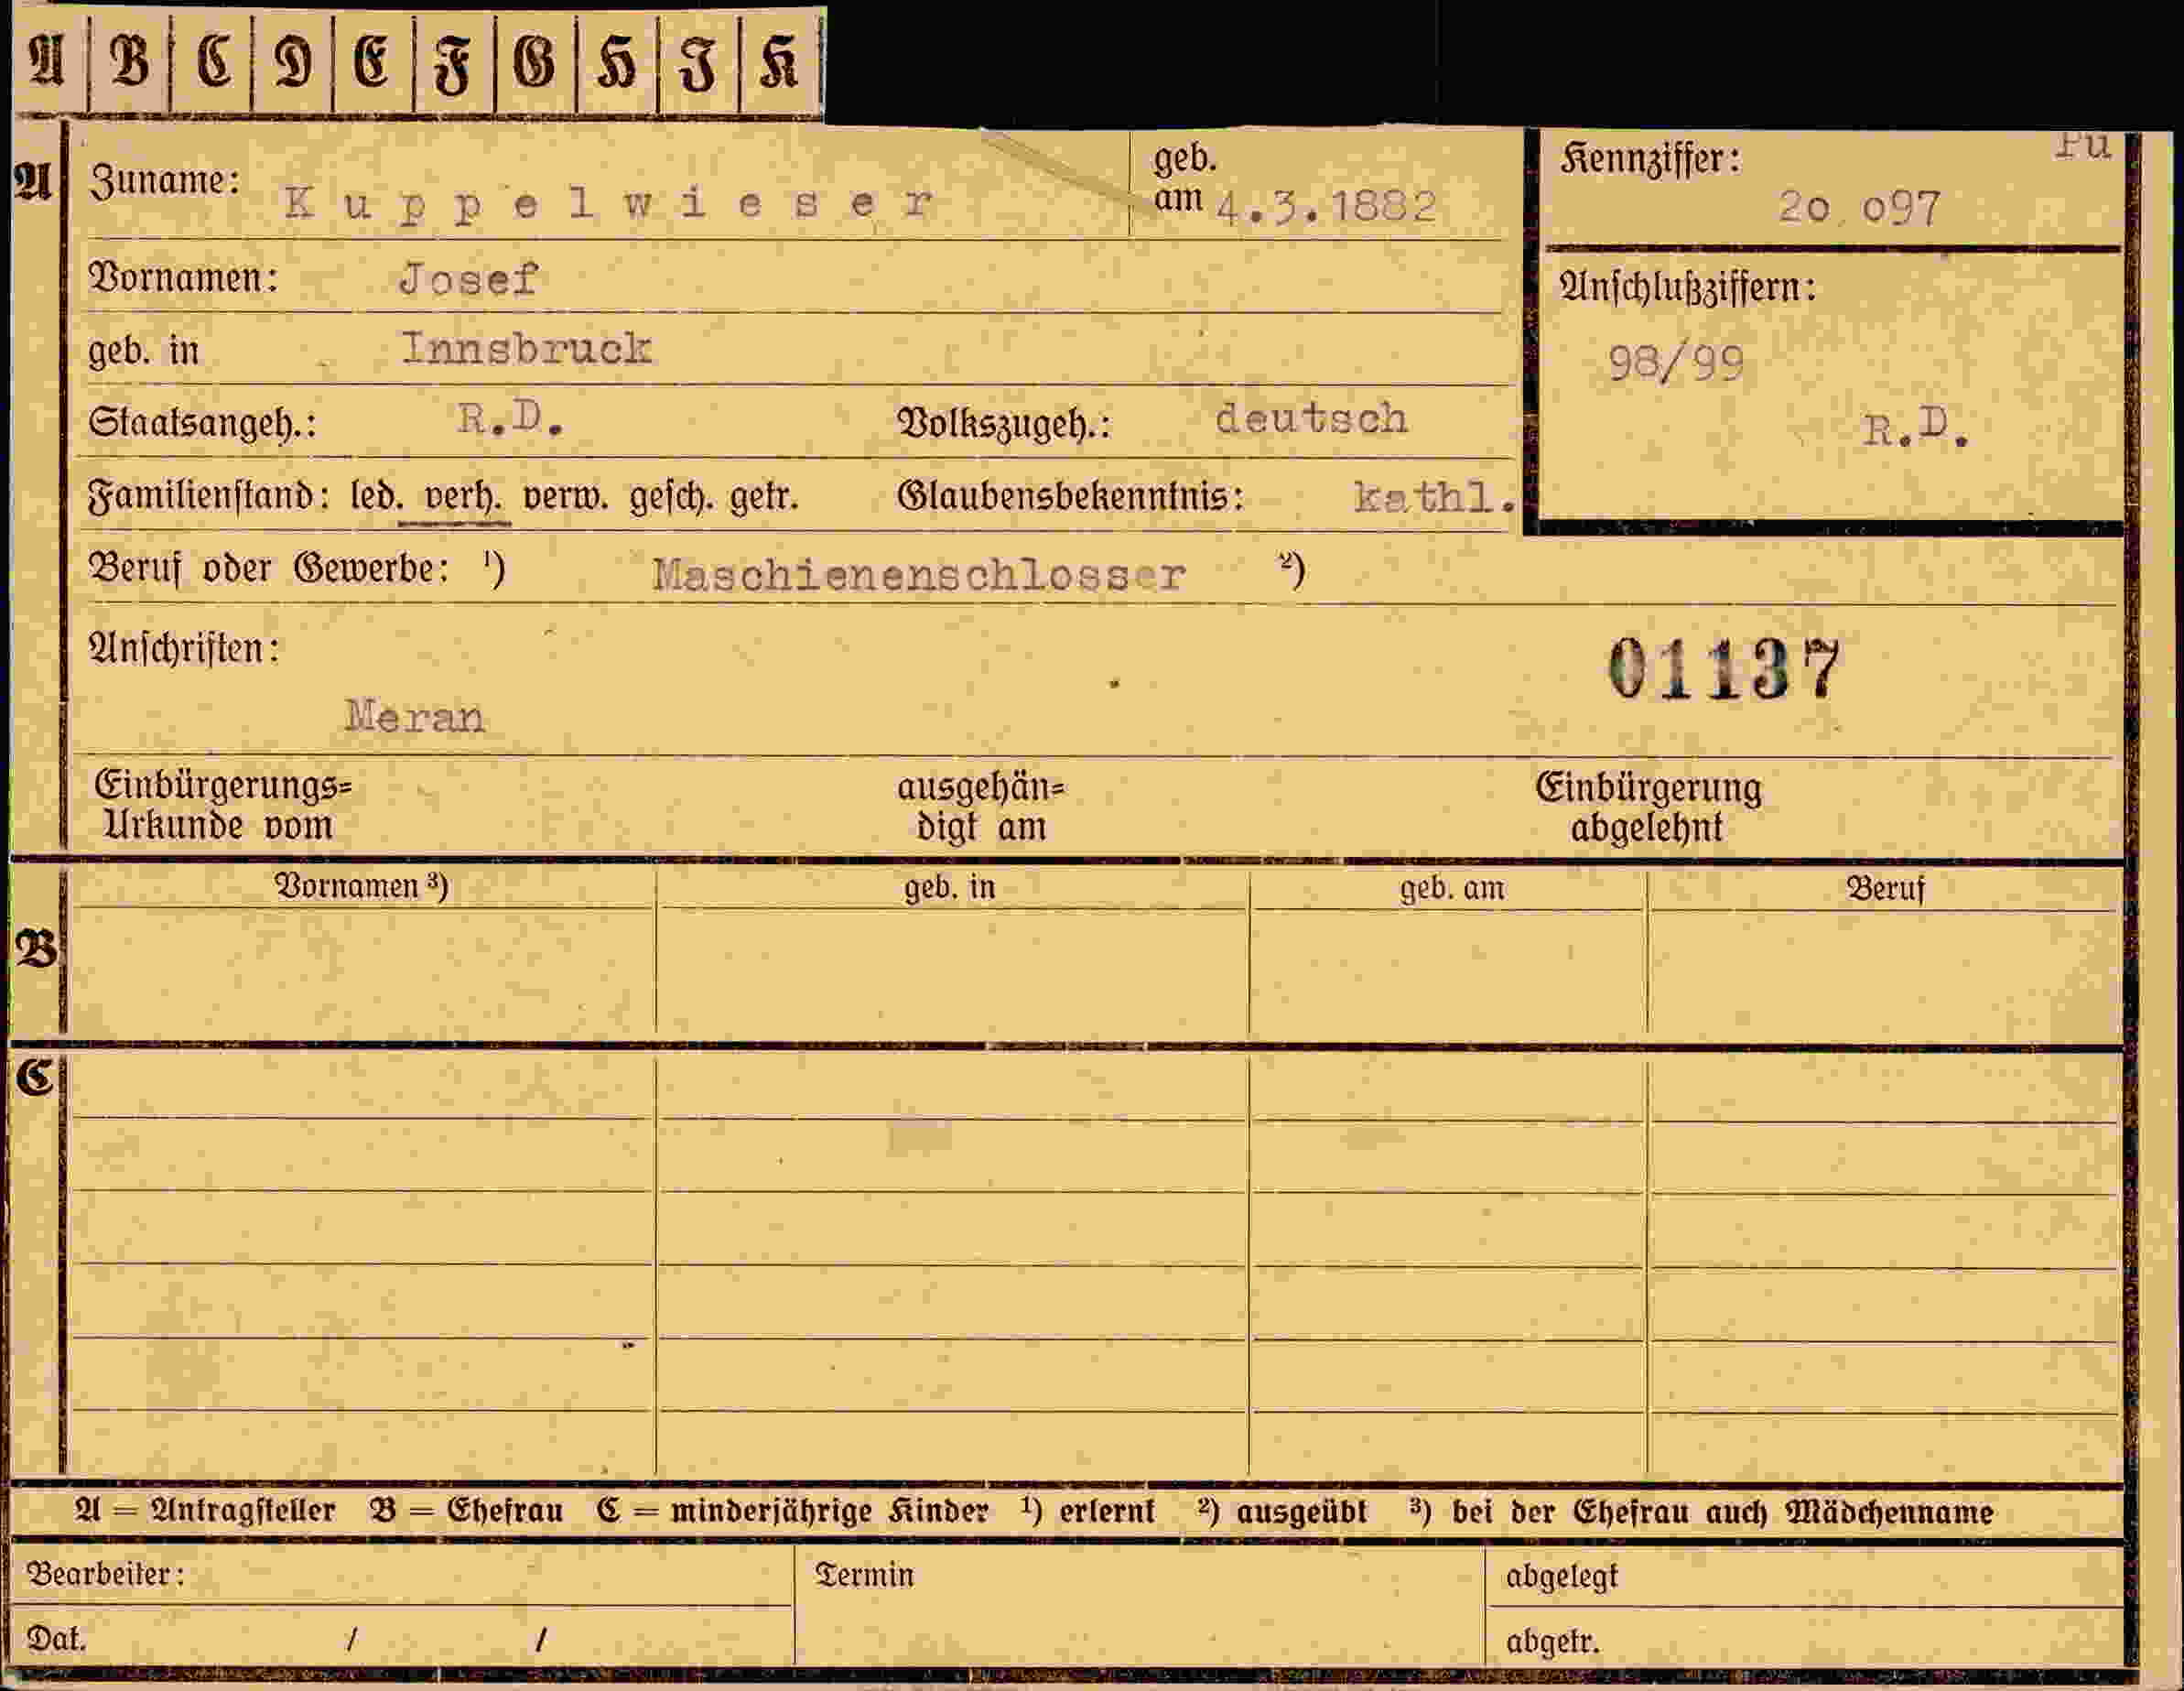 A B C D E F G H I K
A Zuname: Kuppelwieser geb. am 4.3.1882 Kennziffer: 20 097
Vornamen: Josef Anschlußziffern:
geb. in Innsbruck 98/99
Staatsangeh.: R.D. Volkszugeh.: deutsch R.D.
Familienstand: led. verh. verw. gesch. getr. Glaubensbekenntnis: kathl.
Beruf oder Gewerbe: 1) Maschienenschlosser 2)
Anschriften: 01137
Meran
Einbürgerungs= ausgehän= Einbürgerung
Urkunde vom digt am abgelehnt
Vornamen 3) geb. in geb. am Beruf
B
C
A = Antragsteller B = Ehefrau C = minderjährige Kinder 1) erlernt 2) ausgeübt 3) bei der Ehefrau auch Mädchenname
Bearbeiter: Termin abgelegt
Dat. / / abgetr.